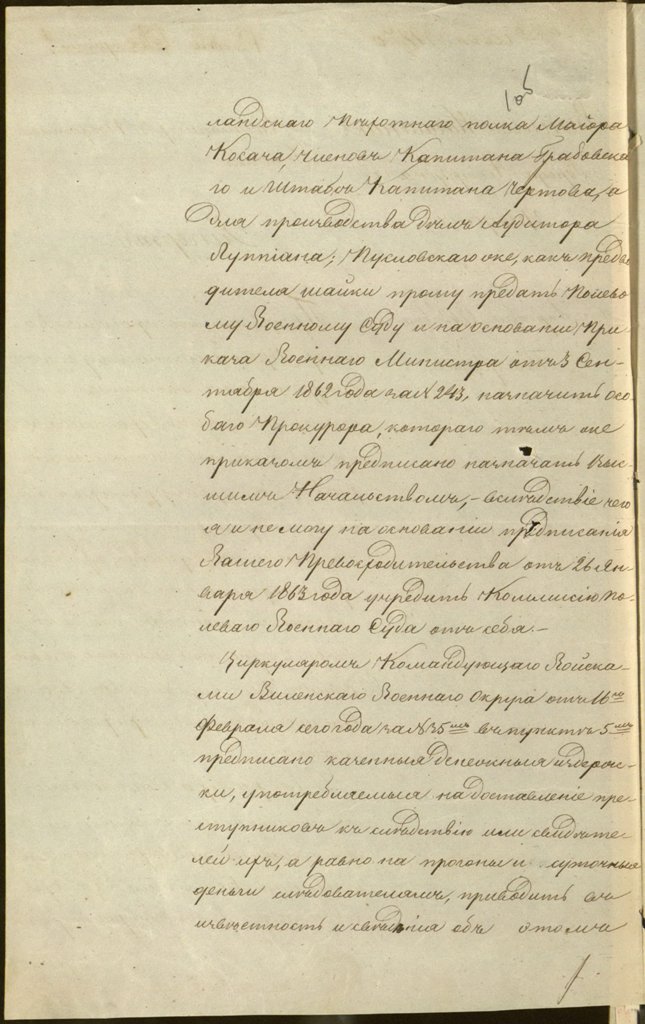 105
ландскаго Пѣхотнаго полка Маіора
Косача, членовъ Капитана Грабовска
го и Штабсъ Капитана Чертова, а
для производства дѣлъ Аудитора
Пусловскаго же, какъ предво
дителя шайки прошу предать Полево
му Военному Суду и на основаніи При
каза Военнаго Министра отъ 3 Сен-
тября 1862 года за № 243, назначить осо
баго Прокурора, котораго тѣмъ же
приказомъ предписано назначать Выс-
шимъ Начальствомъ, – вслѣдствіе чего
я и не могу на основаніи предписанія
Вашего Превосходительства отъ 26 Ян-
варя 1863 года учредить Коммисію по-
леваго Военнаго Суда отъ себя. –
Циркуляромъ Командующаго Войска-
ми Виленскаго Военнаго Округа отъ 16го
Февраля сего года за № 35мъ въ пунктѣ 5мъ
предписано казенныя денежныя издерж-
ки, употребляемыя на доставленіе пре-
ступниковъ къ слѣдствію или свидѣте-
лей а равно на прогоны и суточныя
деньги слѣдователямъ, приводить въ
извѣстность и свѣденія объ этомъ